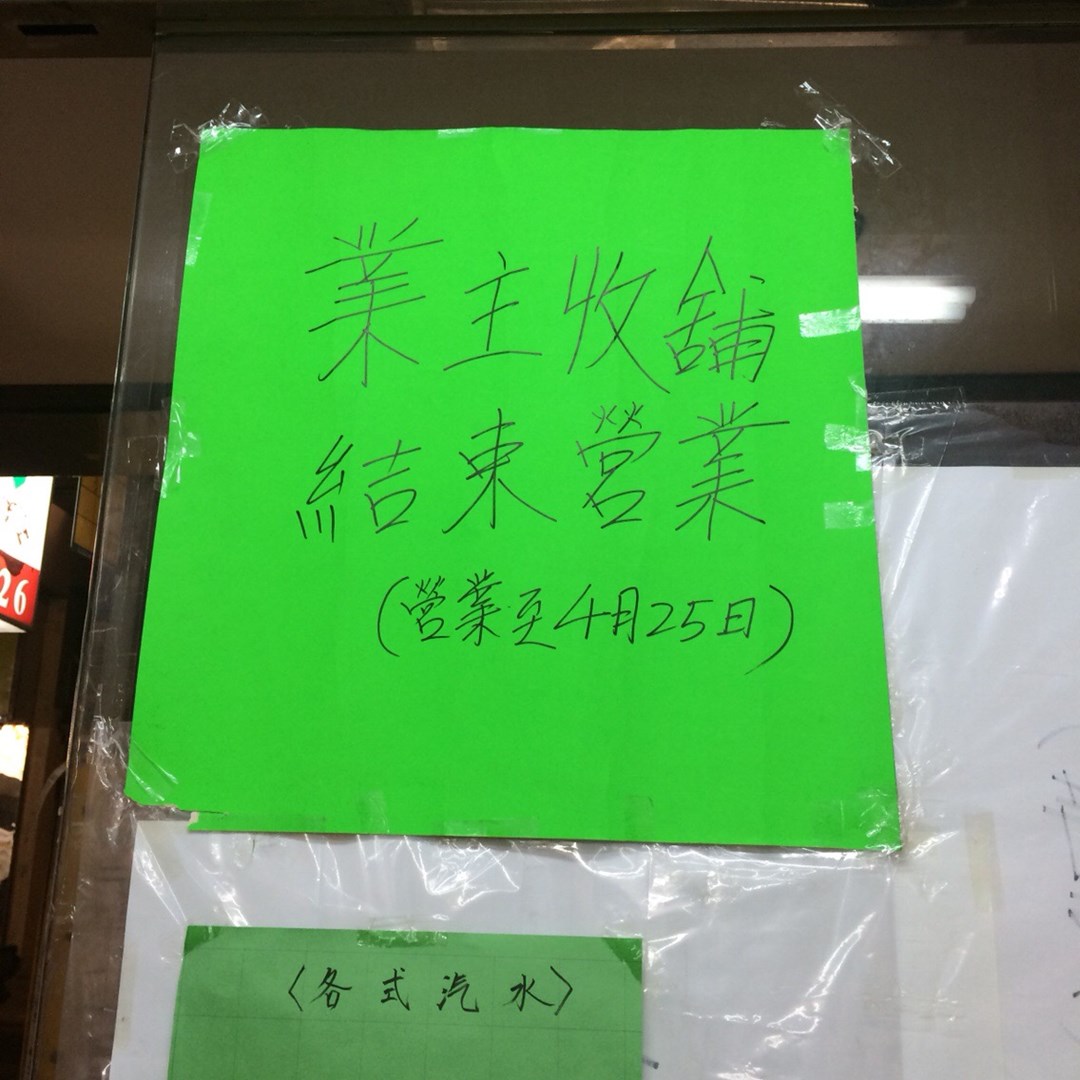 業主收舖
結束營業
(營業至4月25日)
〈各式汽水〉
26